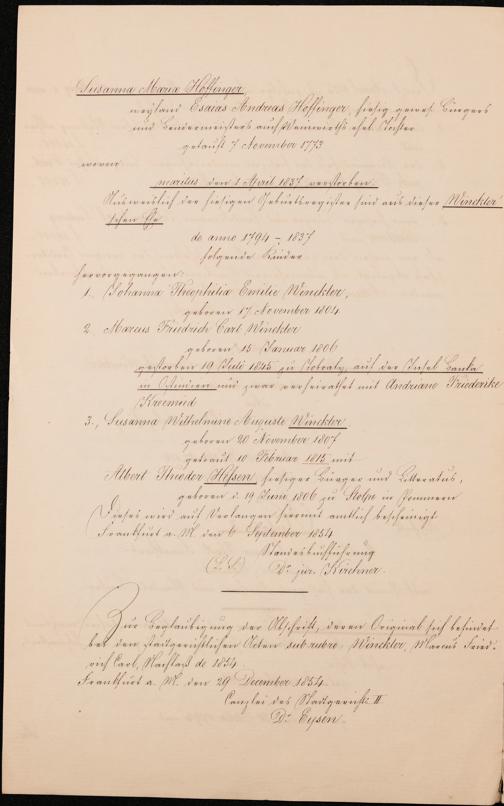 Susanna Maria Hoffinger
weyland Esaias Andreas Hoffinger, hiesig gewes. Bürgers
und Bendermeisters auch Weinwirths ehel. Tochter
getauft 7 November 1773
wovon
maritus den 1 April 1837 verstorben.
Ausweislich der hiesigen Geburtsregister sind aus dieser Winckler'
schen Ehe
de anno 1794 – 1837
folgende Kinder
hervorgegangen:
1. Johanna Theophilia Emilie Winckler,
geboren 17 November 1804
2. Marcus Friedrich Carl Winckler
geboren 15 Januar 1806
gestorben 19 Juli 1845 zu auf der Insel Banka
in Ostindien und zwar verheirathet mit Andriane Friederike
3., Susanna Wilhelmine Auguste Winckler
geboren 20 November 1807
getraut 10 Februar 1815 mit
Albert Theodor Hessen, hiesiger Bürger und Litteratus,
geboren d. 19 Juni 1806 zu Stolpe in Pommern
Dieses wird auf Verlangen hiermit amtlich bescheinigt
Frankfurt a. M. den 6 September 1854
Standesbuchführung
(L.S.) Dr. jur. Kirchner.
Zur Beglaubigung der Abschrift, deren Original sich befindet
bei den stadtgerichtlichen Acten sub rubro: Winckler, Marcus Fried-
rich Carl, Nachlaß de 1854.
Frankfurt a. M. den 29 December 1854.
Canzlei des Stadtgerichts II
Dr. Eysen.